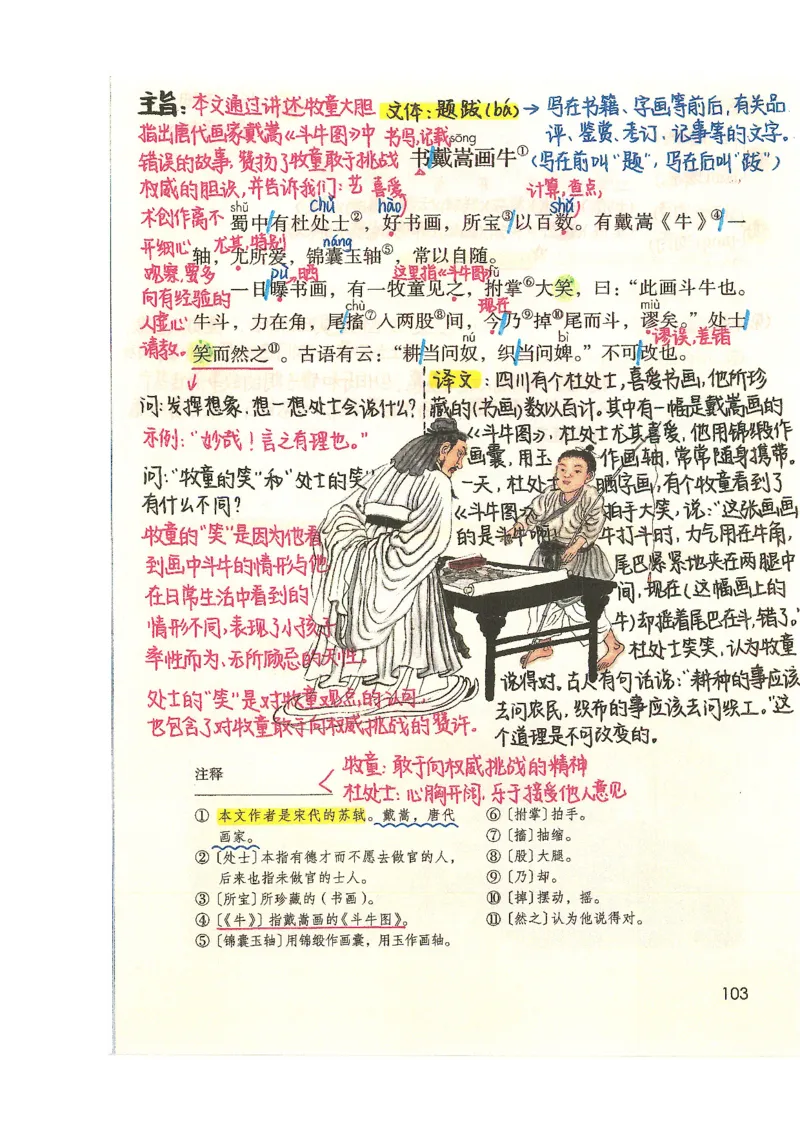 主旨：本文通过讲述牧童大胆
指出唐代画家戴嵩《斗牛图》中
错误的故事，赞扬了牧童敢于挑战
权威的胆识，并告诉我们：艺
术创作离不
开细心
观察，要多
向有经验的
人虚心
请教。
文体：题跋(bá)→写在书籍、字画等前后，有关品
评、鉴赏、考订、记事等的文字。
(写在前叫"题"，写在后叫"跋")
书写，记载 sōng
书/戴嵩画牛①
喜爱 计算，查点，
shǔ chǔ hào shǔ
蜀中/有杜处士②，好书画，所宝③/以百数。有戴嵩《牛》④/一
尤其，特别 náng
轴，尤所爱，锦囊玉轴⑤，常以自随。
pù 晒 这里指《斗牛图》 fǔ
一日/曝书画，有一牧童见之，拊掌⑥大笑，曰：“此画斗牛也。
chù 现在 miù
牛斗，力在角，尾/搐⑦入两股⑧间，今/乃⑨掉⑩尾而斗，谬矣。”处士/
nú bì 谬误，差错
笑而然之⑪。古语有云：“耕/当问奴，织/当问婢。”不可/改也。
问：发挥想象，想一想处士会说什么？
示例：“妙哉！言之有理也。”
问：“牧童的笑”和“处士的笑”
有什么不同？
牧童的“笑”是因为他看
到画中斗牛的情形与他
在日常生活中看到的
情形不同，表现了小孩子
率性而为、无所顾忌的天性。
处士的“笑”是对牧童观点的认可，
也包含了对牧童敢于向权威挑战的赞许。
译文：四川有个杜处士，喜爱书画，他所珍
藏的(书画)数以百计。其中有一幅是戴嵩画的
《斗牛图》，杜处士尤其喜爱，他用锦缎作
画囊，用玉作画轴，常常随身携带。
一天，杜处士晒字画，有个牧童看到了
《斗牛图》拍手大笑，说：“这张画画
的是斗牛啊！牛打斗时，力气用在牛角，
尾巴紧紧地夹在两腿中
间，现在(这幅画上的
牛)却摇着尾巴在斗，错了。”
杜处士笑笑，认为牧童
说得对。古人有句话说：“耕种的事应该
去问农民，织布的事应该去问织工。”这
个道理是不可改变的。
牧童：敢于向权威挑战的精神
杜处士：心胸开阔，乐于接受他人意见
注释
① 本文作者是宋代的苏轼。戴嵩，唐代
画家。
②〔处士〕本指有德才而不愿去做官的人，
后来也指未做官的士人。
③〔所宝〕所珍藏的（书画）。
④〔《牛》〕指戴嵩画的《斗牛图》。
⑤〔锦囊玉轴〕用锦缎作画囊，用玉作画轴。
⑥〔拊掌〕拍手。
⑦〔搐〕抽缩。
⑧〔股〕大腿。
⑨〔乃〕却。
⑩〔掉〕摆动，摇。
⑪〔然之〕认为他说得对。
103